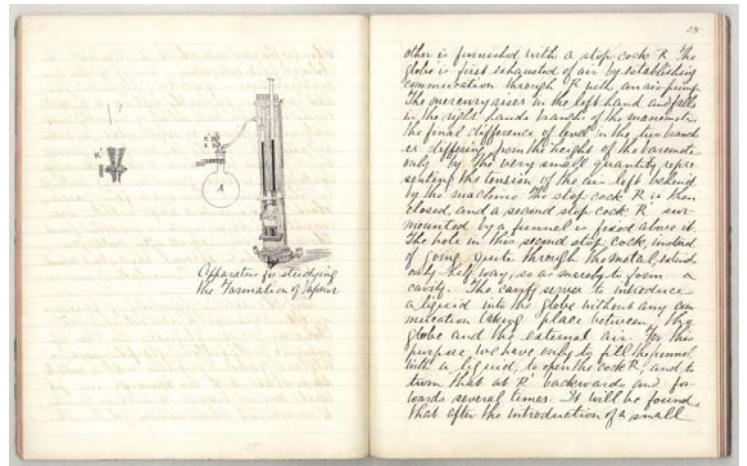 Apparatus for studying
the Formation of Vapour
R'
R'
R
A
28
other is furnished with a stop cock R The
globe is first exhausted of air by establishing
communication through R with an air pump
The mercury rises in the left hand and falls
in the right hand branch of the manometer
the final difference of level in the two branch
es differing from the height of the barometer
only by the very small quantity repre
senting the tension of the air left behind
by the machine. The stop cock R is then
closed, and a second stop cock R' sur
mounted by a funnel is fixed above it.
The hole in this second stop cock, instead
of going quite through the metal, extends
only half way, so as merely to form a
cavity. The cavity serves to introduce
a liquid into the globe without any com
munication taking place between the
globe and the external air. For this
purpose we have only to fill the funnel
with a liquid, to open the cock R, and to
turn that at R' backwards and for
wards several times. It will be found
that after the introduction of a small